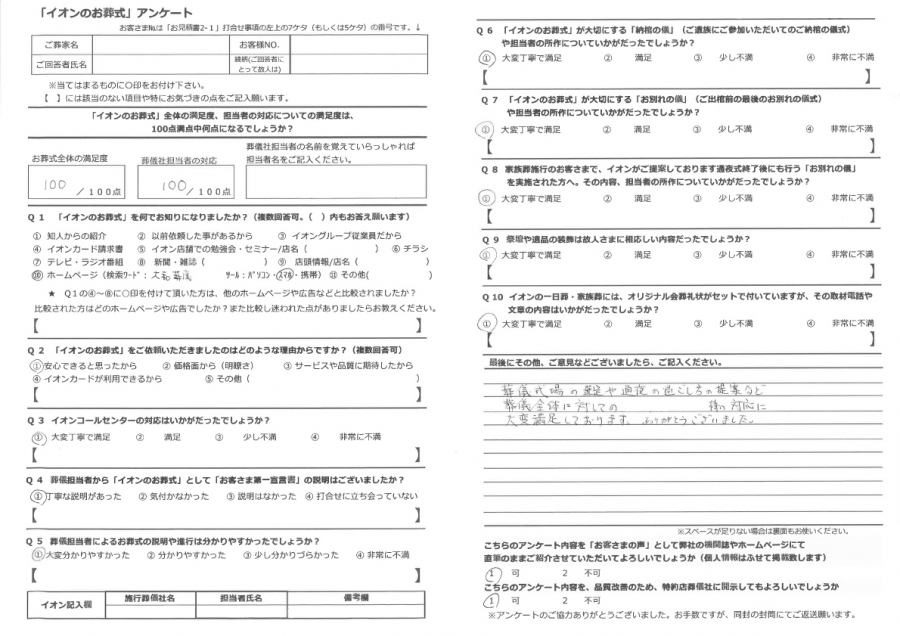 「イオンのお葬式」アンケート
お客さま№は「お見積書2-1」打合せ事項の左上の7ケタ(もしくは5ケタ)の番号です。↓
ご葬家名 お客様NO.
ご回答者氏名 続柄(ご回答者にとって故人は)
※当てはまるものに○印をお付け下さい。
【 】には該当のない項目や特にお気づきの点をご記入願います。
「イオンのお葬式」全体の満足度、担当者の対応についての満足度は、
100点満点中何点になるでしょうか?
お葬式全体の満足度 葬儀社担当者の対応 葬儀社担当者の名前を覚えていらっしゃれば
担当者名をご記入ください。
100 /100点 100 /100点
Q1 「イオンのお葬式」を何でお知りになりましたか?(複数回答可。( )内もお答え願います)
① 知人からの紹介 ② 以前依頼した事があるから ③ イオングループ従業員だから
④ イオンカード請求書 ⑤ イオン店舗での勉強会・セミナー/店名( ) ⑥ チラシ
⑦ テレビ・ラジオ番組 ⑧ 新聞・雑誌( ) ⑨ 店頭情報/店名( )
⑩ ホームページ(検索ワード: ツール:パソコン・スマホ・携帯) ⑪ その他( )
★ Q1の④~⑧に○印を付けて頂いた方は、他のホームページや広告などと比較されましたか?
比較された方はどのホームページや広告でしたか?また比較し迷われた点がありましたらお教えください。
【 】
Q2 「イオンのお葬式」をご依頼いただきましたのはどのような理由からですか?(複数回答可)
①安心できると思ったから ② 価格面から(明瞭さ) ③ サービスや品質に期待したから
④ イオンカードが利用できるから ⑤ その他( )
【 】
Q3 イオンコールセンターの対応はいかがだったでしょうか?
① 大変丁寧で満足 ② 満足 ③ 少し不満 ④ 非常に不満
【 】
Q4 葬儀担当者から「イオンのお葬式」として「お客さま第一宣言書」の説明はございましたか?
①丁寧な説明があった ② 気付かなかった ③ 説明はなかった ④ 打合せに立ち会っていない
【 】
Q5 葬儀担当者によるお葬式の説明や進行は分かりやすかったでしょうか?
①大変分かりやすかった ② 分かりやすかった ③ 少し分かりづらかった ④ 非常に不満
【 】
イオン記入欄 施行葬儀社名 担当者氏名 備考欄
Q6 「イオンのお葬式」が大切にする「納棺の儀」(ご遺族にご参加いただいてのご納棺の儀式)
や担当者の所作についていかがだったでしょうか?
① 大変丁寧で満足 ② 満足 ③ 少し不満 ④ 非常に不満
【 】
Q7 「イオンのお葬式」が大切にする「お別れの儀」(ご出棺前の最後のお別れの儀式)
や担当者の所作についていかがだったでしょうか?
① 大変丁寧で満足 ② 満足 ③ 少し不満 ④ 非常に不満
【 】
Q8 家族葬施行のお客さまで、イオンがご提案しております通夜式終了後にも行う「お別れの儀」
を実施された方へ。その内容、担当者の所作についていかがだったでしょうか?
① 大変丁寧で満足 ② 満足 ③ 少し不満 ④ 非常に不満
【 】
Q9 祭壇や遺品の装飾は故人さまに相応しい内容だったでしょうか?
① 大変丁寧で満足 ② 満足 ③ 少し不満 ④ 非常に不満
【 】
Q10 イオンの一日葬・家族葬には、オリジナル会葬礼状がセットで付いていますが、その取材電話や
文章の内容はいかがだったでしょうか?
① 大変丁寧で満足 ② 満足 ③ 少し不満 ④ 非常に不満
【 】
最後にその他、ご意見などございましたら、ご記入ください。
葬儀式場の選定や通夜の過ごし方の提案など
葬儀全体に対しての 様の対応に
大変満足しております。ありがとうございました。
※スペースが足りない場合は裏面もお使いください。
こちらのアンケート内容を「お客さまの声」として弊社の機関誌やホームページにて
直筆のままご紹介させていただいてよろしいでしょうか(個人情報はふせて掲載致します)
1 可 2 不可
こちらのアンケート内容を、品質改善のため、特約店葬儀社に開示してもよろしいでしょうか
1 可 2 不可
※アンケートのご協力ありがとうございました。お手数ですが、同封の封筒にてご返送願います。